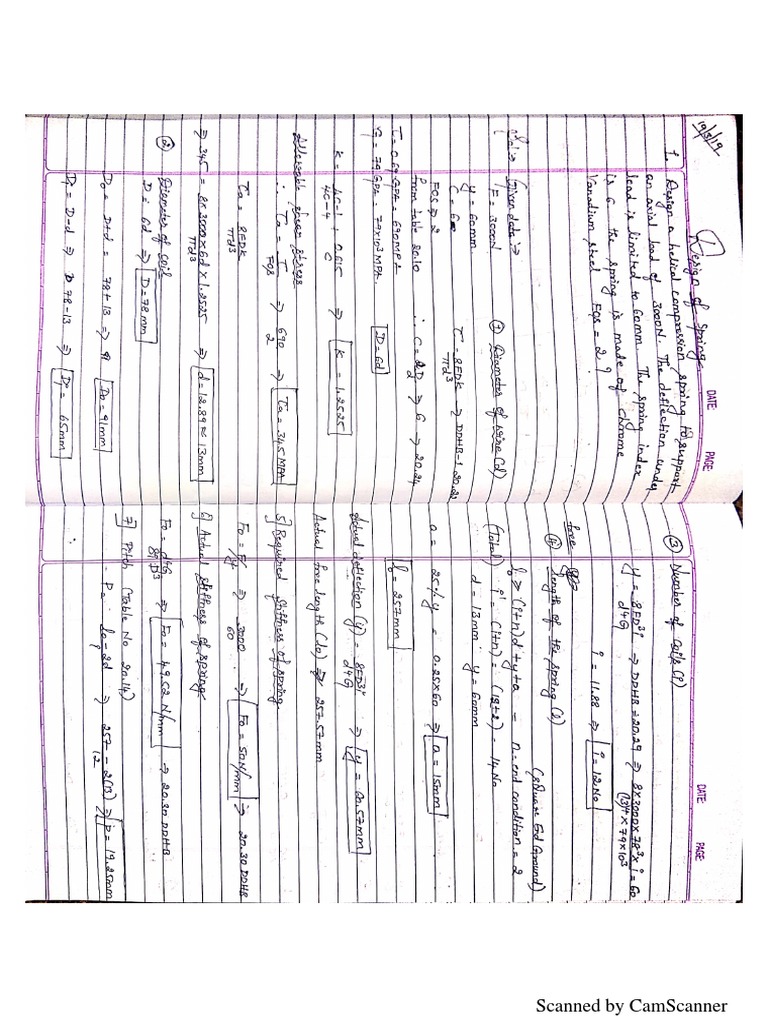 DATE: PAGE:
19/3/19
Design of Spring
1. Design a helical compression spring to support
an axial load of 3000N. The deflection under
load is limited to 60mm. The spring index
is 6 the spring is made of chrome
Vanadium steel FOS = 2 ?
Given data :-
F = 3000N
y = 60mm
C = 6
FOS = 2
From table 20.10
τ = 0.69 GPA = 690 MPA
G = 79 GPA = 79×10³ MPA.
① Diameter of wire (d)
τ = 8FDK/πd³ ⇒ DDHB-1 20.22
∴ C = D/d ⇒ 6 ⇒ 20.24
D = 6d
k = 4C-1/4C-4 + 0.615/C ⇒ k = 1.2525
Allowable shear stress
∴ τa = τ/FOS ⇒ 690/2 ⇒ τa = 345 MPA
τa = 8FDK/πd³
⇒ 345 = 8×3000×6d×1.2525/πd³ ⇒ d = 12.89 ≈ 13mm
② Diameter of coil
D = 6d ⇒ D = 78mm
Do = D+d = 78+13 ⇒ 91 Do = 91mm
Di = D-d ⇒ 78-13 ⇒ Di = 65mm
DATE: PAGE:
③ Number of coils (i)
y = 8FD³i/d⁴G ⇒ DDHB = 20.29 ⇒ 8×3000×78³×i/(13)⁴×79×10³ = 60
i = 11.88 ⇒ i = 12 No
④ free length of the spring (l)
(square End Ground)
lo ≥ (i+n)d+y+a - n = end condition = 2
(total) i' = (i+n) = (12+2) = 14 No
d = 13mm. y = 60mm
a = 25% y = 0.25×60 ⇒ a = 15mm
lo = 257mm
Actual deflection (y) = 8FD³i/d⁴G ⇒ y = 60.57mm
Actual free length (lo) ⇒ 257.57mm
5] Required stiffness of spring
Fo = F/y ⇒ 3000/60 ⇒ Fo = 50N/mm ⇒ 20.30 DDHB
6] Actual stiffness of spring
Fo = d⁴G/8D³i ⇒ Fo = 49.52 N/mm ⇒ 20.30 DDHB
7] Pitch (Table No 20.14)
P = lo-2d/i ⇒ 257-2(13)/12 ⇒ p = 19.25mm
Scanned by CamScanner